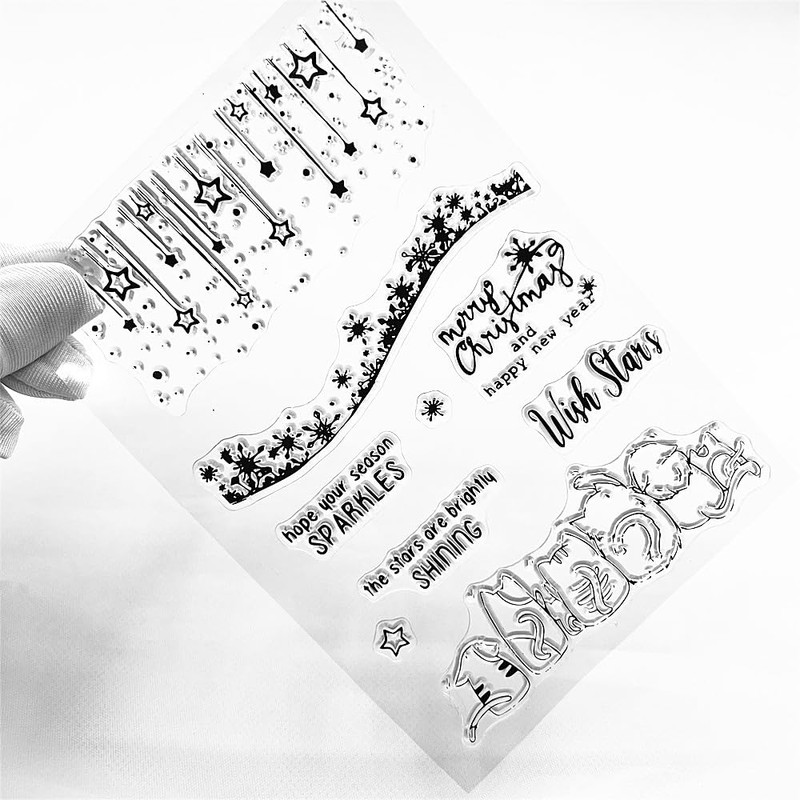 merry
Christmas
and
happy new year
Wish Stars
hope your season
SPARKLES
the stars are brightly
SHINING